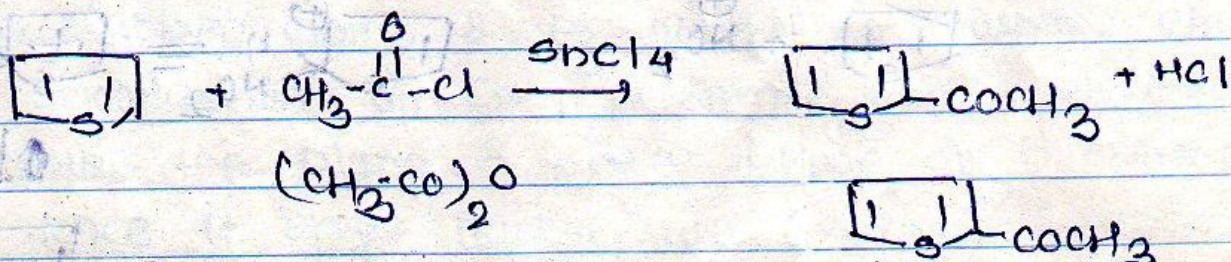 O
S + CH3-C-Cl SnCl4 → S COCH3 + HCl
(CH3-CO)2O
S COCH3